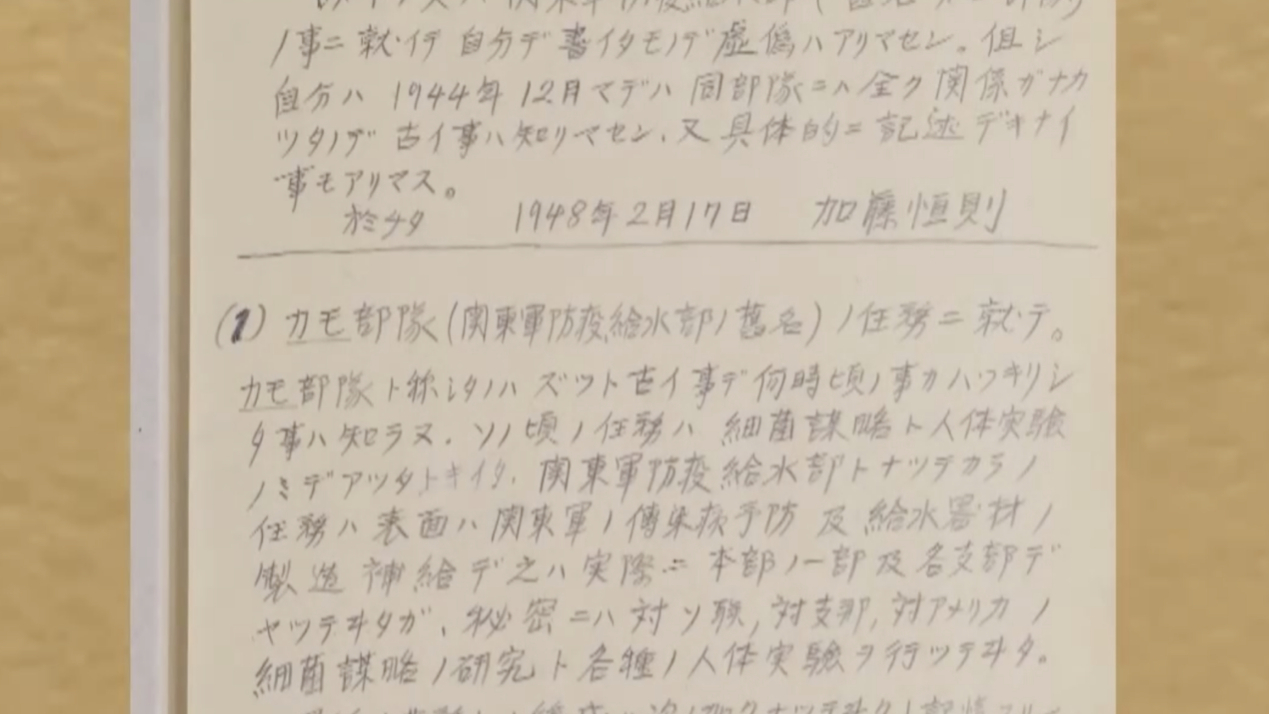 関東軍防疫給水部
ノ事ニ就イテ 自分デ書イタモノデ虚偽ハアリマセン。但シ
自分ハ 1944年12月マデハ 同部隊ニハ全ク関係ガナカ
ツタノデ 古イ事ハ知リマセン、又具体的ニ記述デキナイ
事モアリマス。
於チタ 1948年2月17日 加藤恒則
(1) カモ部隊(関東軍防疫給水部ノ舊名)ノ任務ニ就テ。
カモ部隊ト称シタノハ ズツト古イ事デ何時頃ノ事カハツキリシ
タ事ハ知ラヌ、ソノ頃ノ任務ハ 細菌謀略ト人体実験
ノミデアツタトキイタ、関東軍防疫給水部トナツテカラノ
任務ハ表面ハ関東軍ノ傳染病予防 及給水器材ノ
製造補給デ之ハ実際ニ本部ノ一部及各支部デ
ヤツテヰタガ、秘密ニハ対ソ联,対支那,対アメリカノ
細菌謀略ノ研究ト各種ノ人体実験ヲ行ツテヰタ。